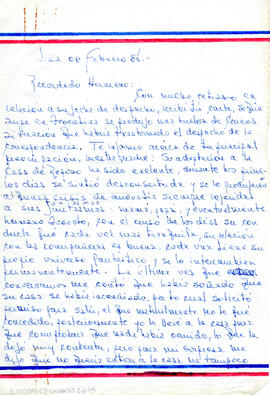 22 de Febrero 86.-
Recordado Hermano:
Con mucho retraso en
relación a su fecha de despacho, recibí tu carta, según
supe en Fronteras se produjo una huelga de
situación que había trastornado el despacho de la
correspondencia. Te informo acerca de tu principal
preocupación, nuestra madre: Su adaptación a la
Casa de Reposo ha sido excelente, durante los prime-
ros días se sintió desconcertada y se le produjeron
crisis de angustia siempre referidas
a sus fantasmas: mamá, papá, y eventualmente
hermano Acosta, con el curso de los días su con
ducta fue cada vez más tranquila, su relación
con las compañeras es buena, cada una tiene su
propio universo fantástico y se lo intercambian
permanentemente. La última vez que
conversamos me contó que había soñado que
su casa se había incendiado, para lo cual solicitó
permiso para salir, el que naturalmente no le fue
concedido, posteriormente yo la llevé a la casa para
que comprobara que nada había ocurrido, lo que la
dejó muy contenta, pero para mi sorpresa me
dijo que no quería estar en la casa ni tampoco